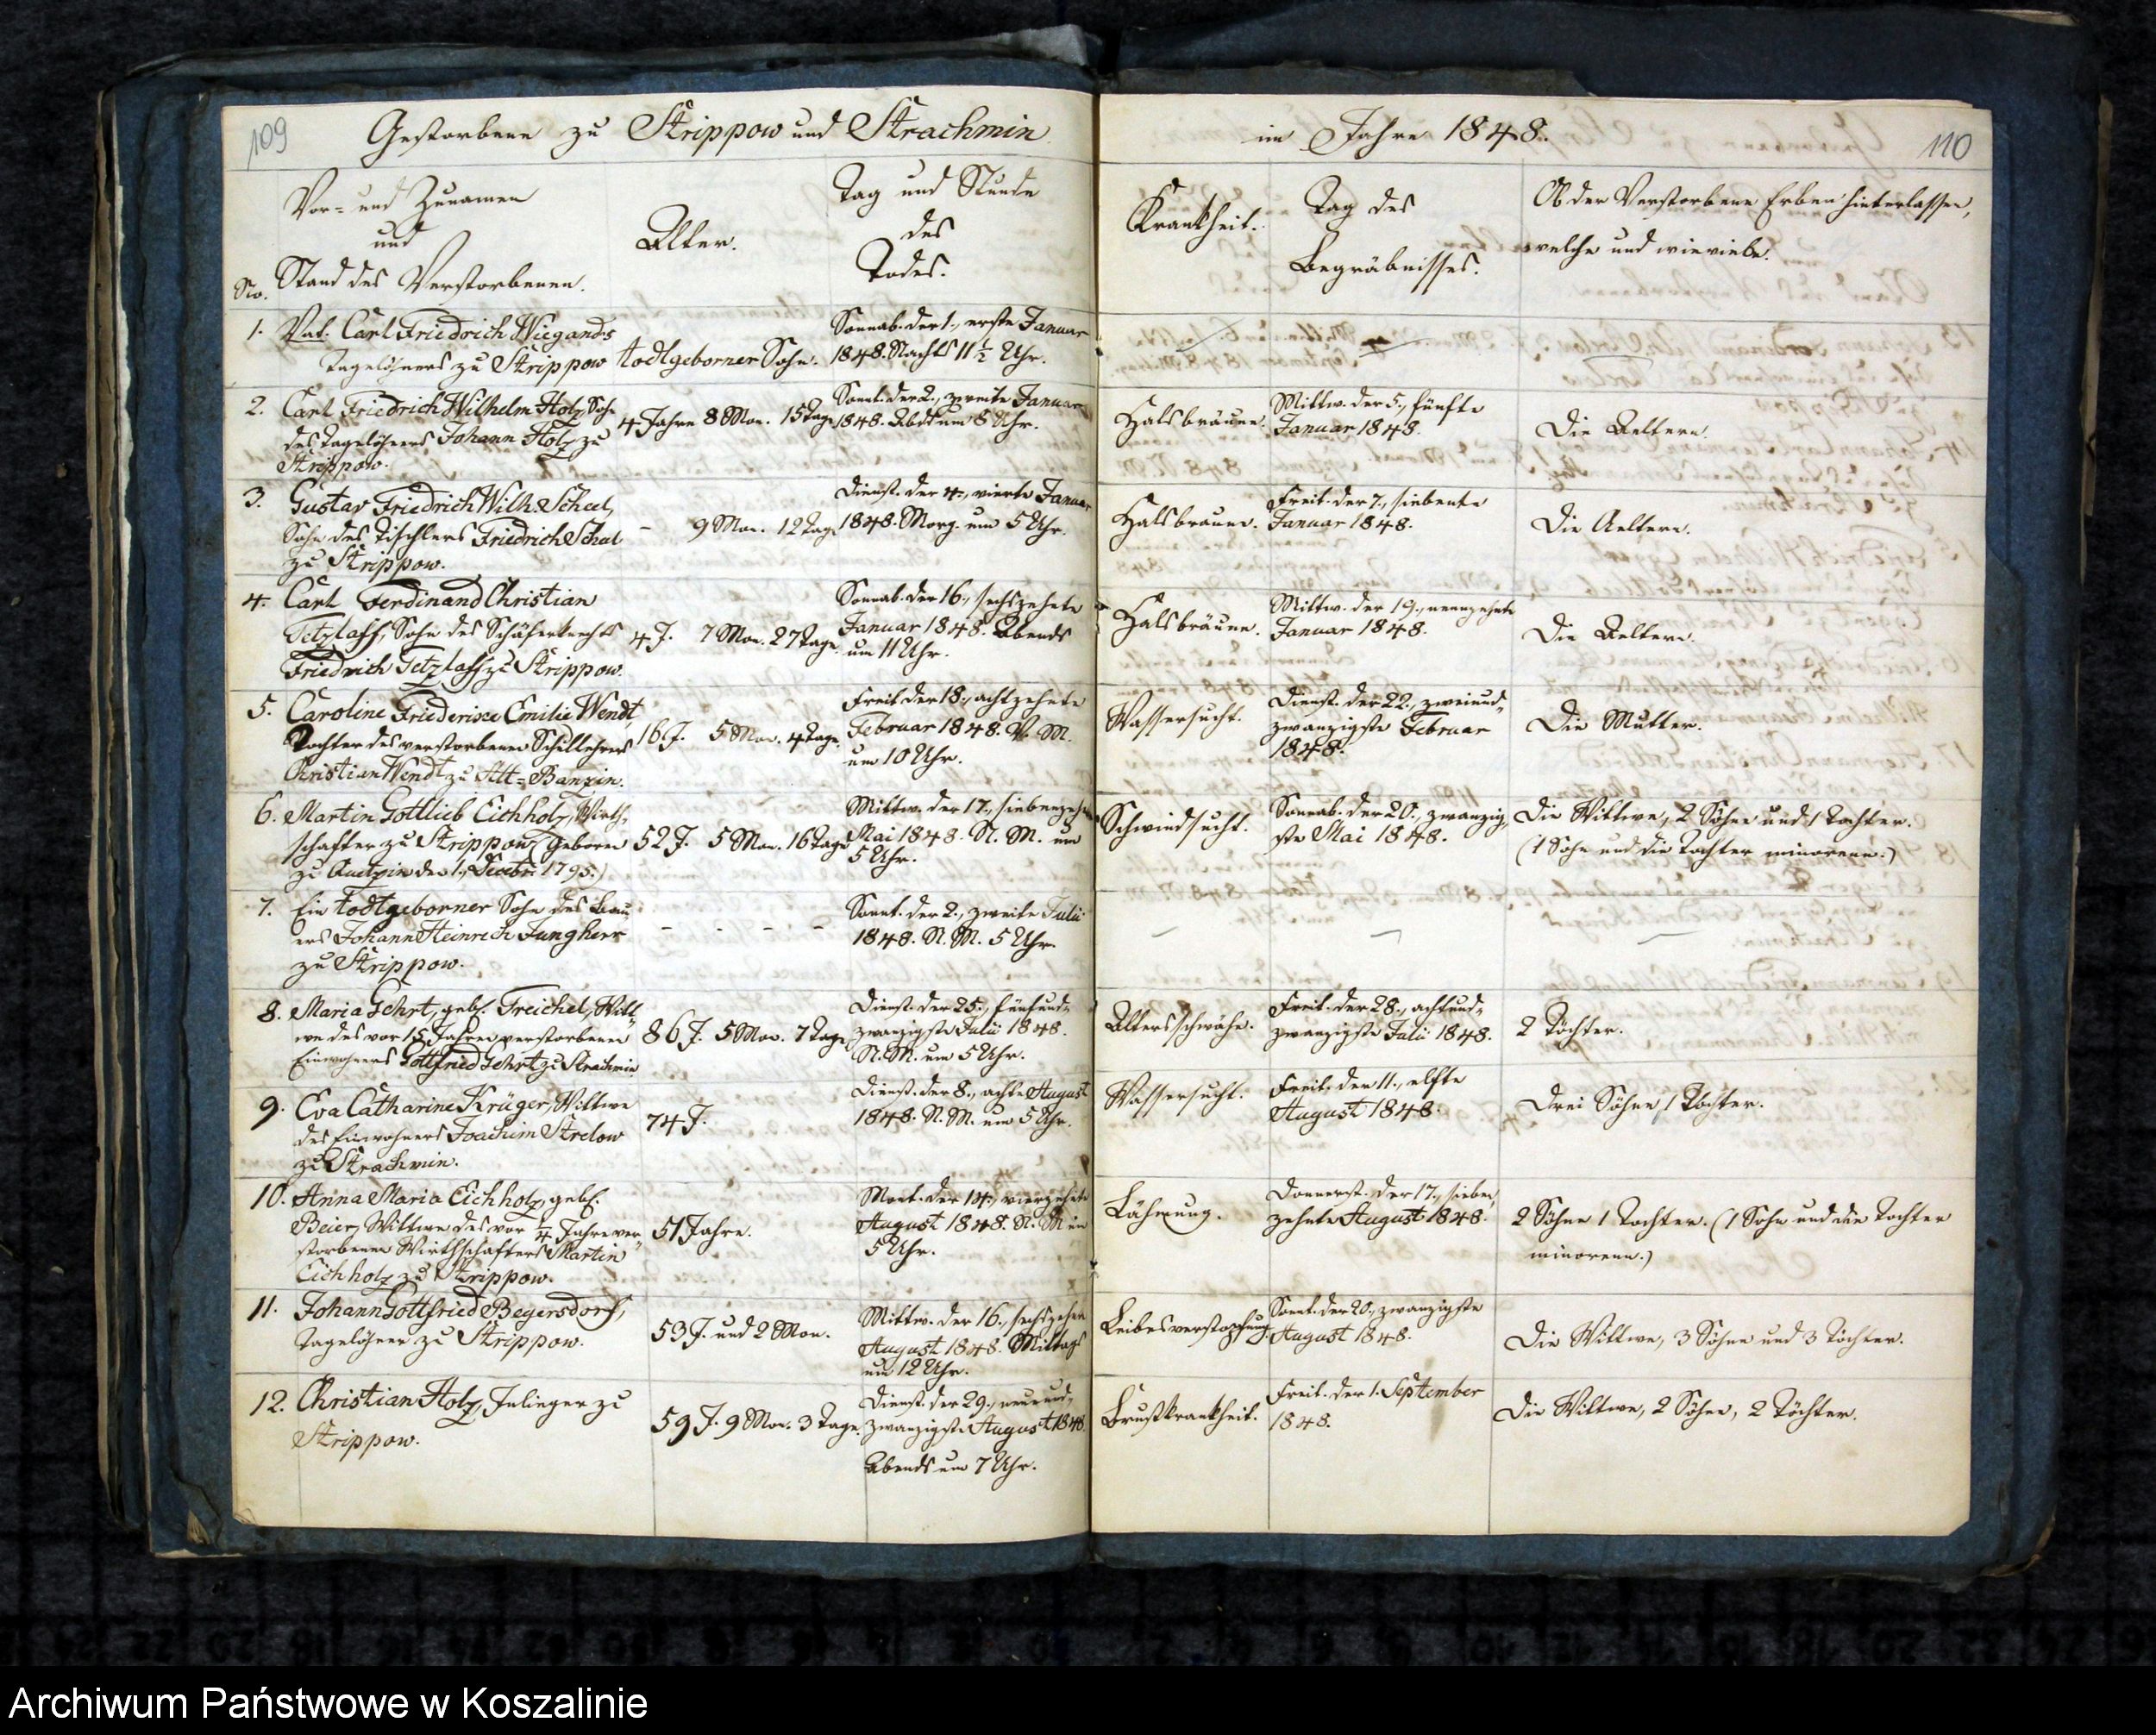 109
Gestorbene zu Strippow und Strachmin
Vor- und Zunamen
und
Stand des Verstorbenen.
No.
Alter.
Tag und Stunde
des
Todes.
1. Vat. Carl Friedrich Wiegands
Tagelöhners zu Strippow
todtgeborner Sohn.
Sonnab. der 1., erste Januar
1848. Nachts 11 1/2 Uhr.
2. Carl Friedrich Wilhelm Holz, Sohn
des Tagelöhners Johann Holz zu
Strippow.
4 Jahre 8 Mon. 15 Tage
Sonnt. der 2., zweite Januar
1848. Abds um 8 Uhr.
3. Gustav Friedrich Wilh. Scheel,
Sohn des Tischlers Friedrich Scheel
zu Strippow.
- 9 Mon. 12 Tage
Dienst. der 4., vierte Januar
1848. Morg. um 5 Uhr.
4. Carl Ferdinand Christian
Tetzlaff, Sohn des Schäferknechts
Friedrich Tetzlaff zu Strippow.
4 J. 7 Mon. 27 Tage.
Sonnab. der 16., sechszehnte
Januar 1848. Abends
um 11 Uhr.
5. Caroline Friederike Emilie Wendt
Tochter des verstorbenen Schullehrers
Christian Wendt zu Alt=Banzin.
16 J. 5 Mon. 4 Tage.
Freit. der 18., achtzehnte
Februar 1848. V. M.
um 10 Uhr.
6. Martin Gottlieb Eichholz, Wirth-
schafter zu Strippow (geboren
zu den 1. Decbr. 1795.)
52 J. 5 Mon. 16 Tage
Mittw. der 17., siebenzehnte
Mai 1848. N. M. um
5 Uhr.
7. Ein todtgeborner Sohn des Bau-
ers Johann Heinrich Jungherr
zu Strippow.
- - - -
Sonnt. der 2., zweite Julii
1848. N. M. 5 Uhr.
8. Maria Gehrt, geb. Treichel, Witt-
we des vor 15 Jahren verstorbenen
Einwohners Gottfried Gehrt zu Strachmin
86 J. 5 Mon. 7 Tage
Dienst. der 25., fünfund-
zwanzigste Julii 1848.
N. M. um 5 Uhr.
9. Eva Catharine Krüger, Wittwe
des Einwohners Joachim Strelow
zu Strachmin.
74 J.
Dienst. der 8., achte August
1848. N. M. um 5 Uhr.
10. Anna Maria Eichholz, geb.
Beier, Wittwe des vor 1/4 Jahre ver-
storbenen Wirthschafters Martin
Eichholz zu Strippow.
51 Jahre.
Mont. der 14., vierzehnte
August 1848. N. M. um
5 Uhr.
11. Johann Gottfried Begersdorf,
Tagelöhner zu Strippow.
53 J. und 2 Mon.
Mittw. der 16., sechszehnte
August 1848. Mittags
um 12 Uhr.
12. Christian Holz, Inlieger zu
Strippow.
59 J. 9 Mon. 3 Tage.
Dienst. der 29., neunund-
zwanzigste August 1848.
Abends um 7 Uhr.
im Jahre 1848.
110
Krankheit.
Tag des
Begräbnisses.
Ob der Verstorbene Erben hinterlassen,
welche und wieviele.
Halsbräune.
Mittw. der 5., fünfte
Januar 1848.
Die Aeltern.
Halsbräune.
Freit. der 7., siebente
Januar 1848.
Die Aeltern.
Halsbräune.
Mittw. der 19., neunzehnte
Januar 1848.
Die Aeltern.
Wassersucht.
Dienst. der 22., zweiund-
zwanzigste Februar
1848.
Die Mutter.
Schwindsucht.
Sonnab. der 20., zwanzig-
ste Mai 1848.
Die Wittwe, 2 Söhne und 1 Tochter.
(1 Sohn und die Tochter minorenn.)
Altersschwäche.
Freit. der 28., achtund-
zwanzigste Julii 1848.
2 Töchter.
Wassersucht.
Freit. der 11., elfte
August 1848.
Drei Söhne, 1 Tochter.
Lähmung.
Donnerst. der 17., sieben-
zehnte August 1848.
2 Söhne 1 Tochter. (1 Sohn und die Tochter
minorenn.)
Leibesverstopfung.
Sonnt. der 20., zwanzigste
August 1848.
Die Wittwe, 3 Söhne und 3 Töchter.
Brustkrankheit.
Freit. der 1. September
1848.
Die Wittwe, 2 Söhne, 2 Töchter.
Archiwum Państwowe w Koszalinie